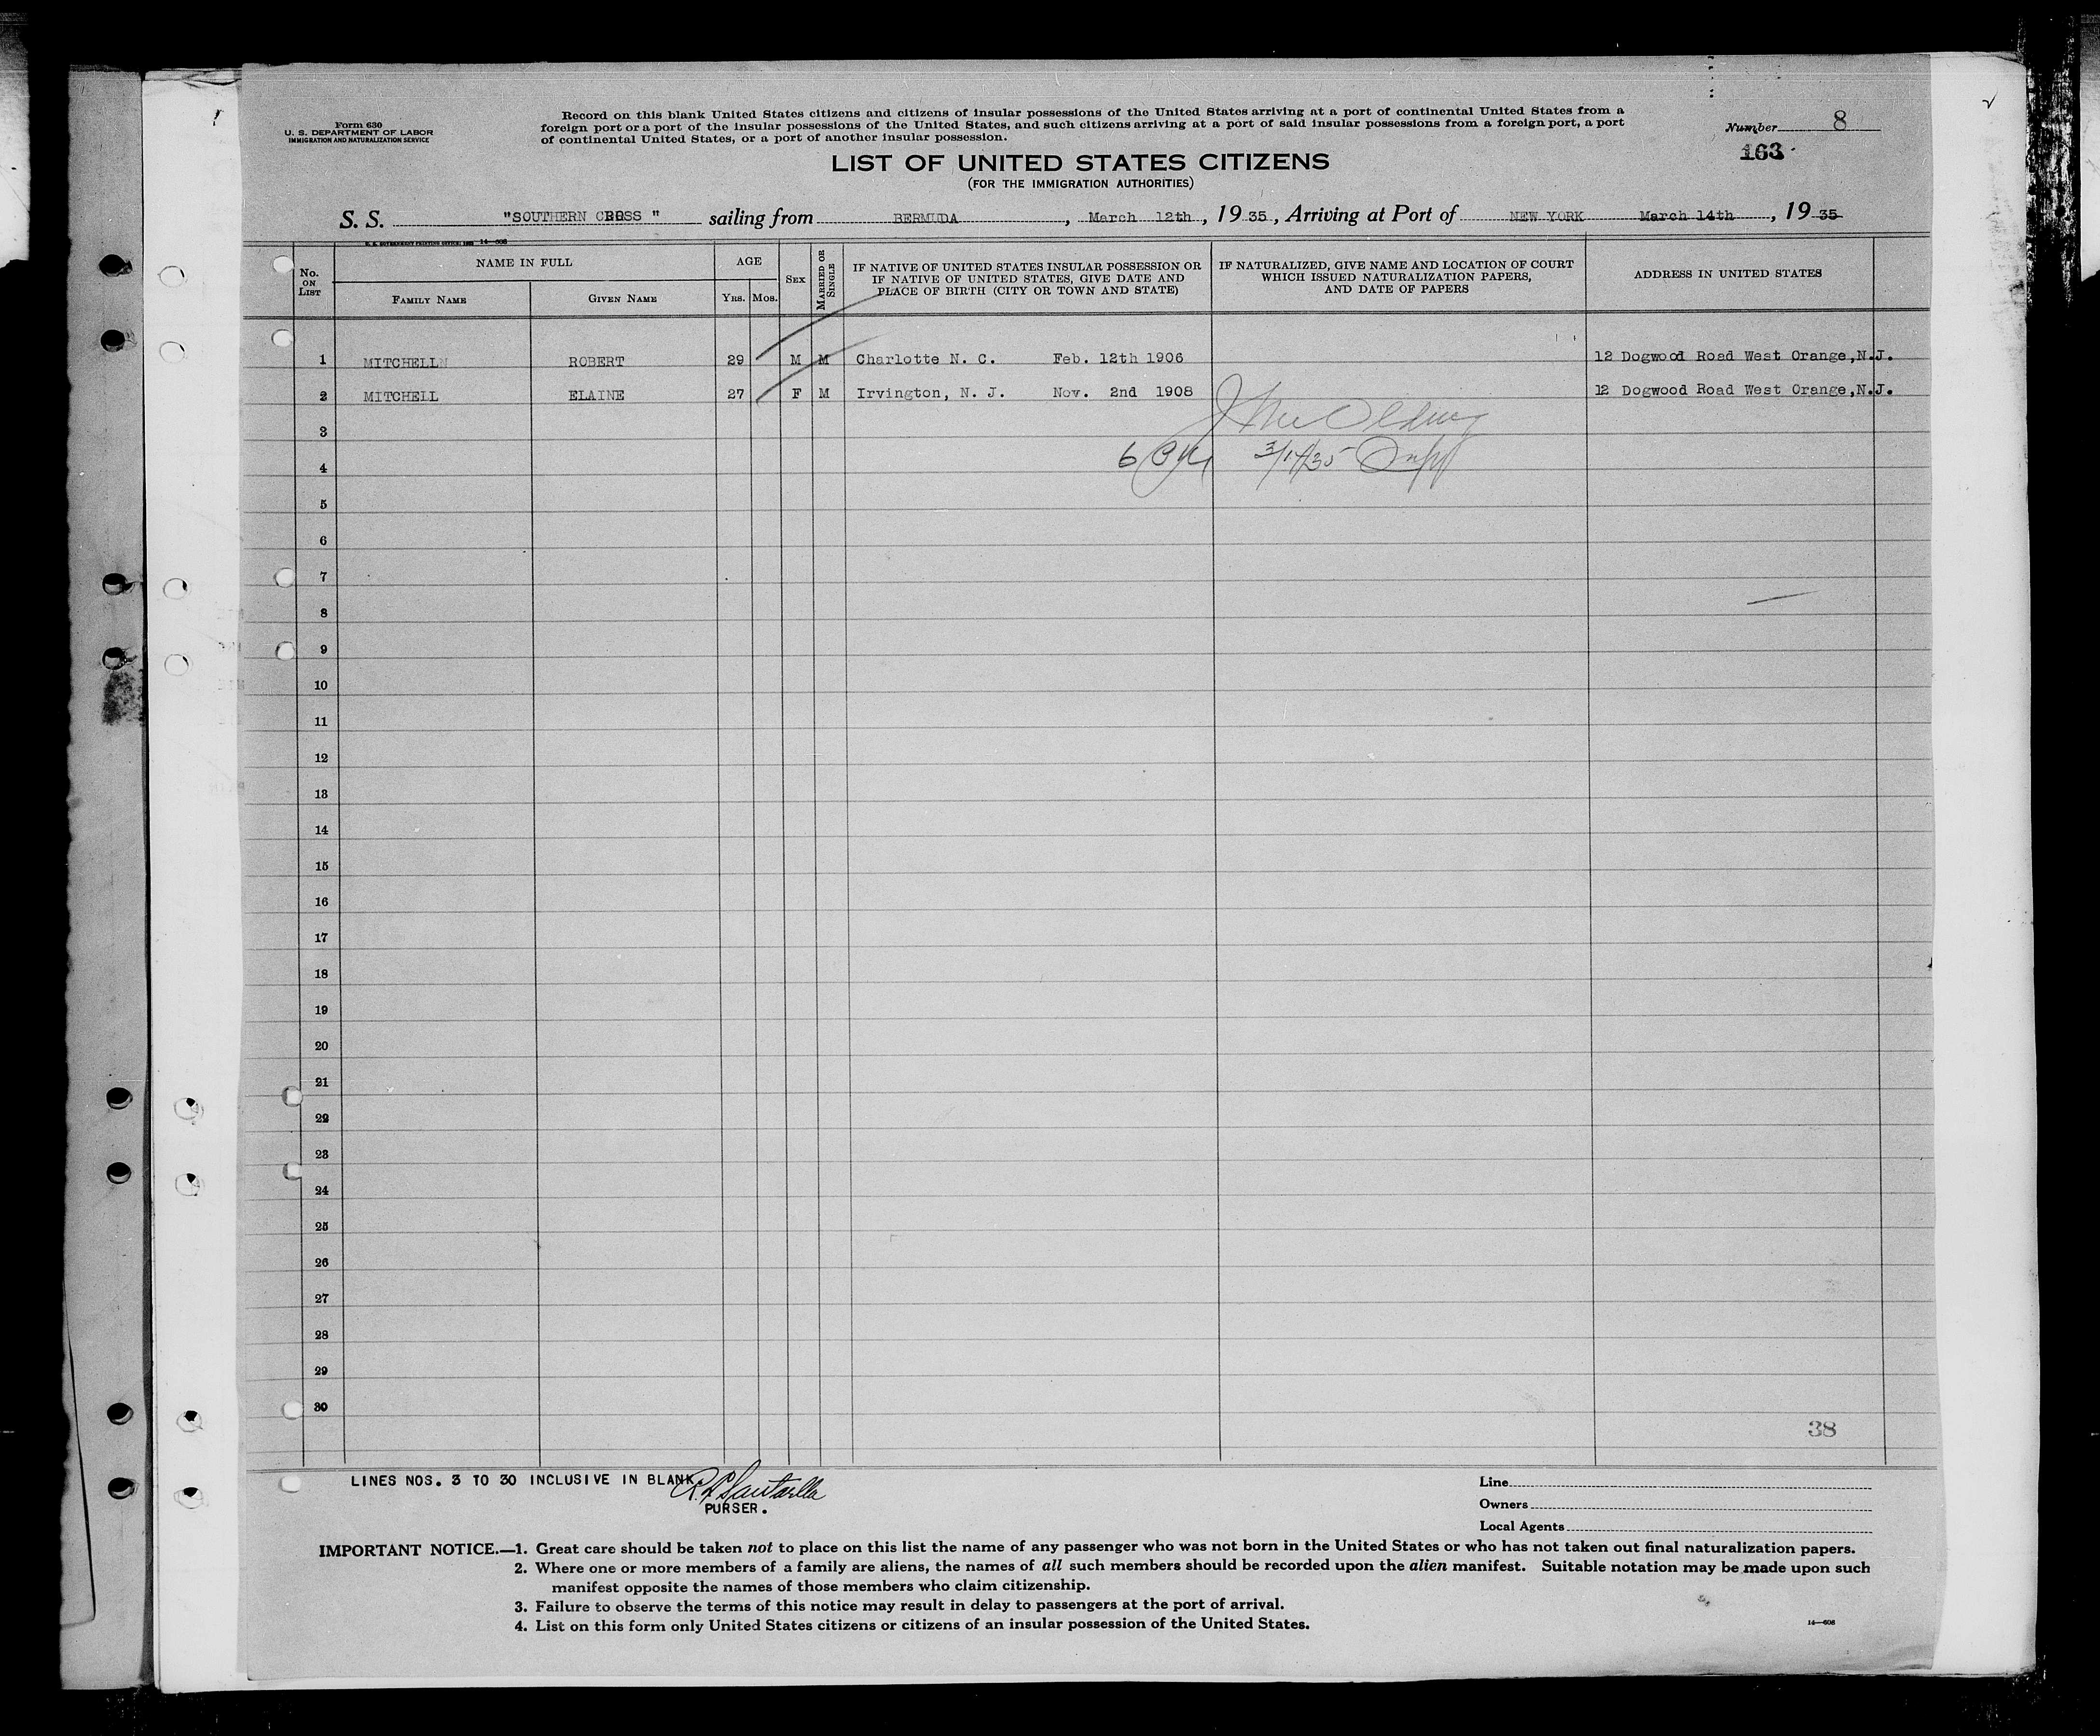 Form 630
U. S. DEPARTMENT OF LABOR
IMMIGRATION AND NATURALIZATION SERVICE
Record on this blank United States citizens and citizens of insular possessions of the United States arriving at a port of continental United States from a
foreign port or a port of the insular possessions of the United States, and such citizens arriving at a port of said insular possessions from a foreign port, a port
of continental United States, or a port of another insular possession.
Number 8
163
LIST OF UNITED STATES CITIZENS
(FOR THE IMMIGRATION AUTHORITIES)
S. S. "SOUTHERN CROSS " sailing from BERMUDA , March 12th , 19 35 , Arriving at Port of NEW YORK March 14th , 19 35
U. S. GOVERNMENT PRINTING OFFICE: 14—608
No. ON LIST
NAME IN FULL
FAMILY NAME
GIVEN NAME
AGE
YRS. MOS.
SEX
MARRIED OR SINGLE
IF NATIVE OF UNITED STATES INSULAR POSSESSION OR
IF NATIVE OF UNITED STATES, GIVE DATE AND
PLACE OF BIRTH (CITY OR TOWN AND STATE)
IF NATURALIZED, GIVE NAME AND LOCATION OF COURT
WHICH ISSUED NATURALIZATION PAPERS,
AND DATE OF PAPERS
ADDRESS IN UNITED STATES
1 MITCHELL ROBERT 29 M M Charlotte N. C. Feb. 12th 1906 12 Dogwood Road West Orange,N.J.
2 MITCHELL ELAINE 27 F M Irvington, N. J. Nov. 2nd 1908 12 Dogwood Road West Orange,N.J.
3
4
5
6
7
8
9
10
11
12
13
14
15
16
17
18
19
20
21
22
23
24
25
26
27
28
29
30
38
LINES NOS. 3 TO 30 INCLUSIVE IN BLANK.
PURSER.
Line
Owners
Local Agents
IMPORTANT NOTICE.—1. Great care should be taken not to place on this list the name of any passenger who was not born in the United States or who has not taken out final naturalization papers.
2. Where one or more members of a family are aliens, the names of all such members should be recorded upon the alien manifest. Suitable notation may be made upon such
manifest opposite the names of those members who claim citizenship.
3. Failure to observe the terms of this notice may result in delay to passengers at the port of arrival.
4. List on this form only United States citizens or citizens of an insular possession of the United States.
14—608